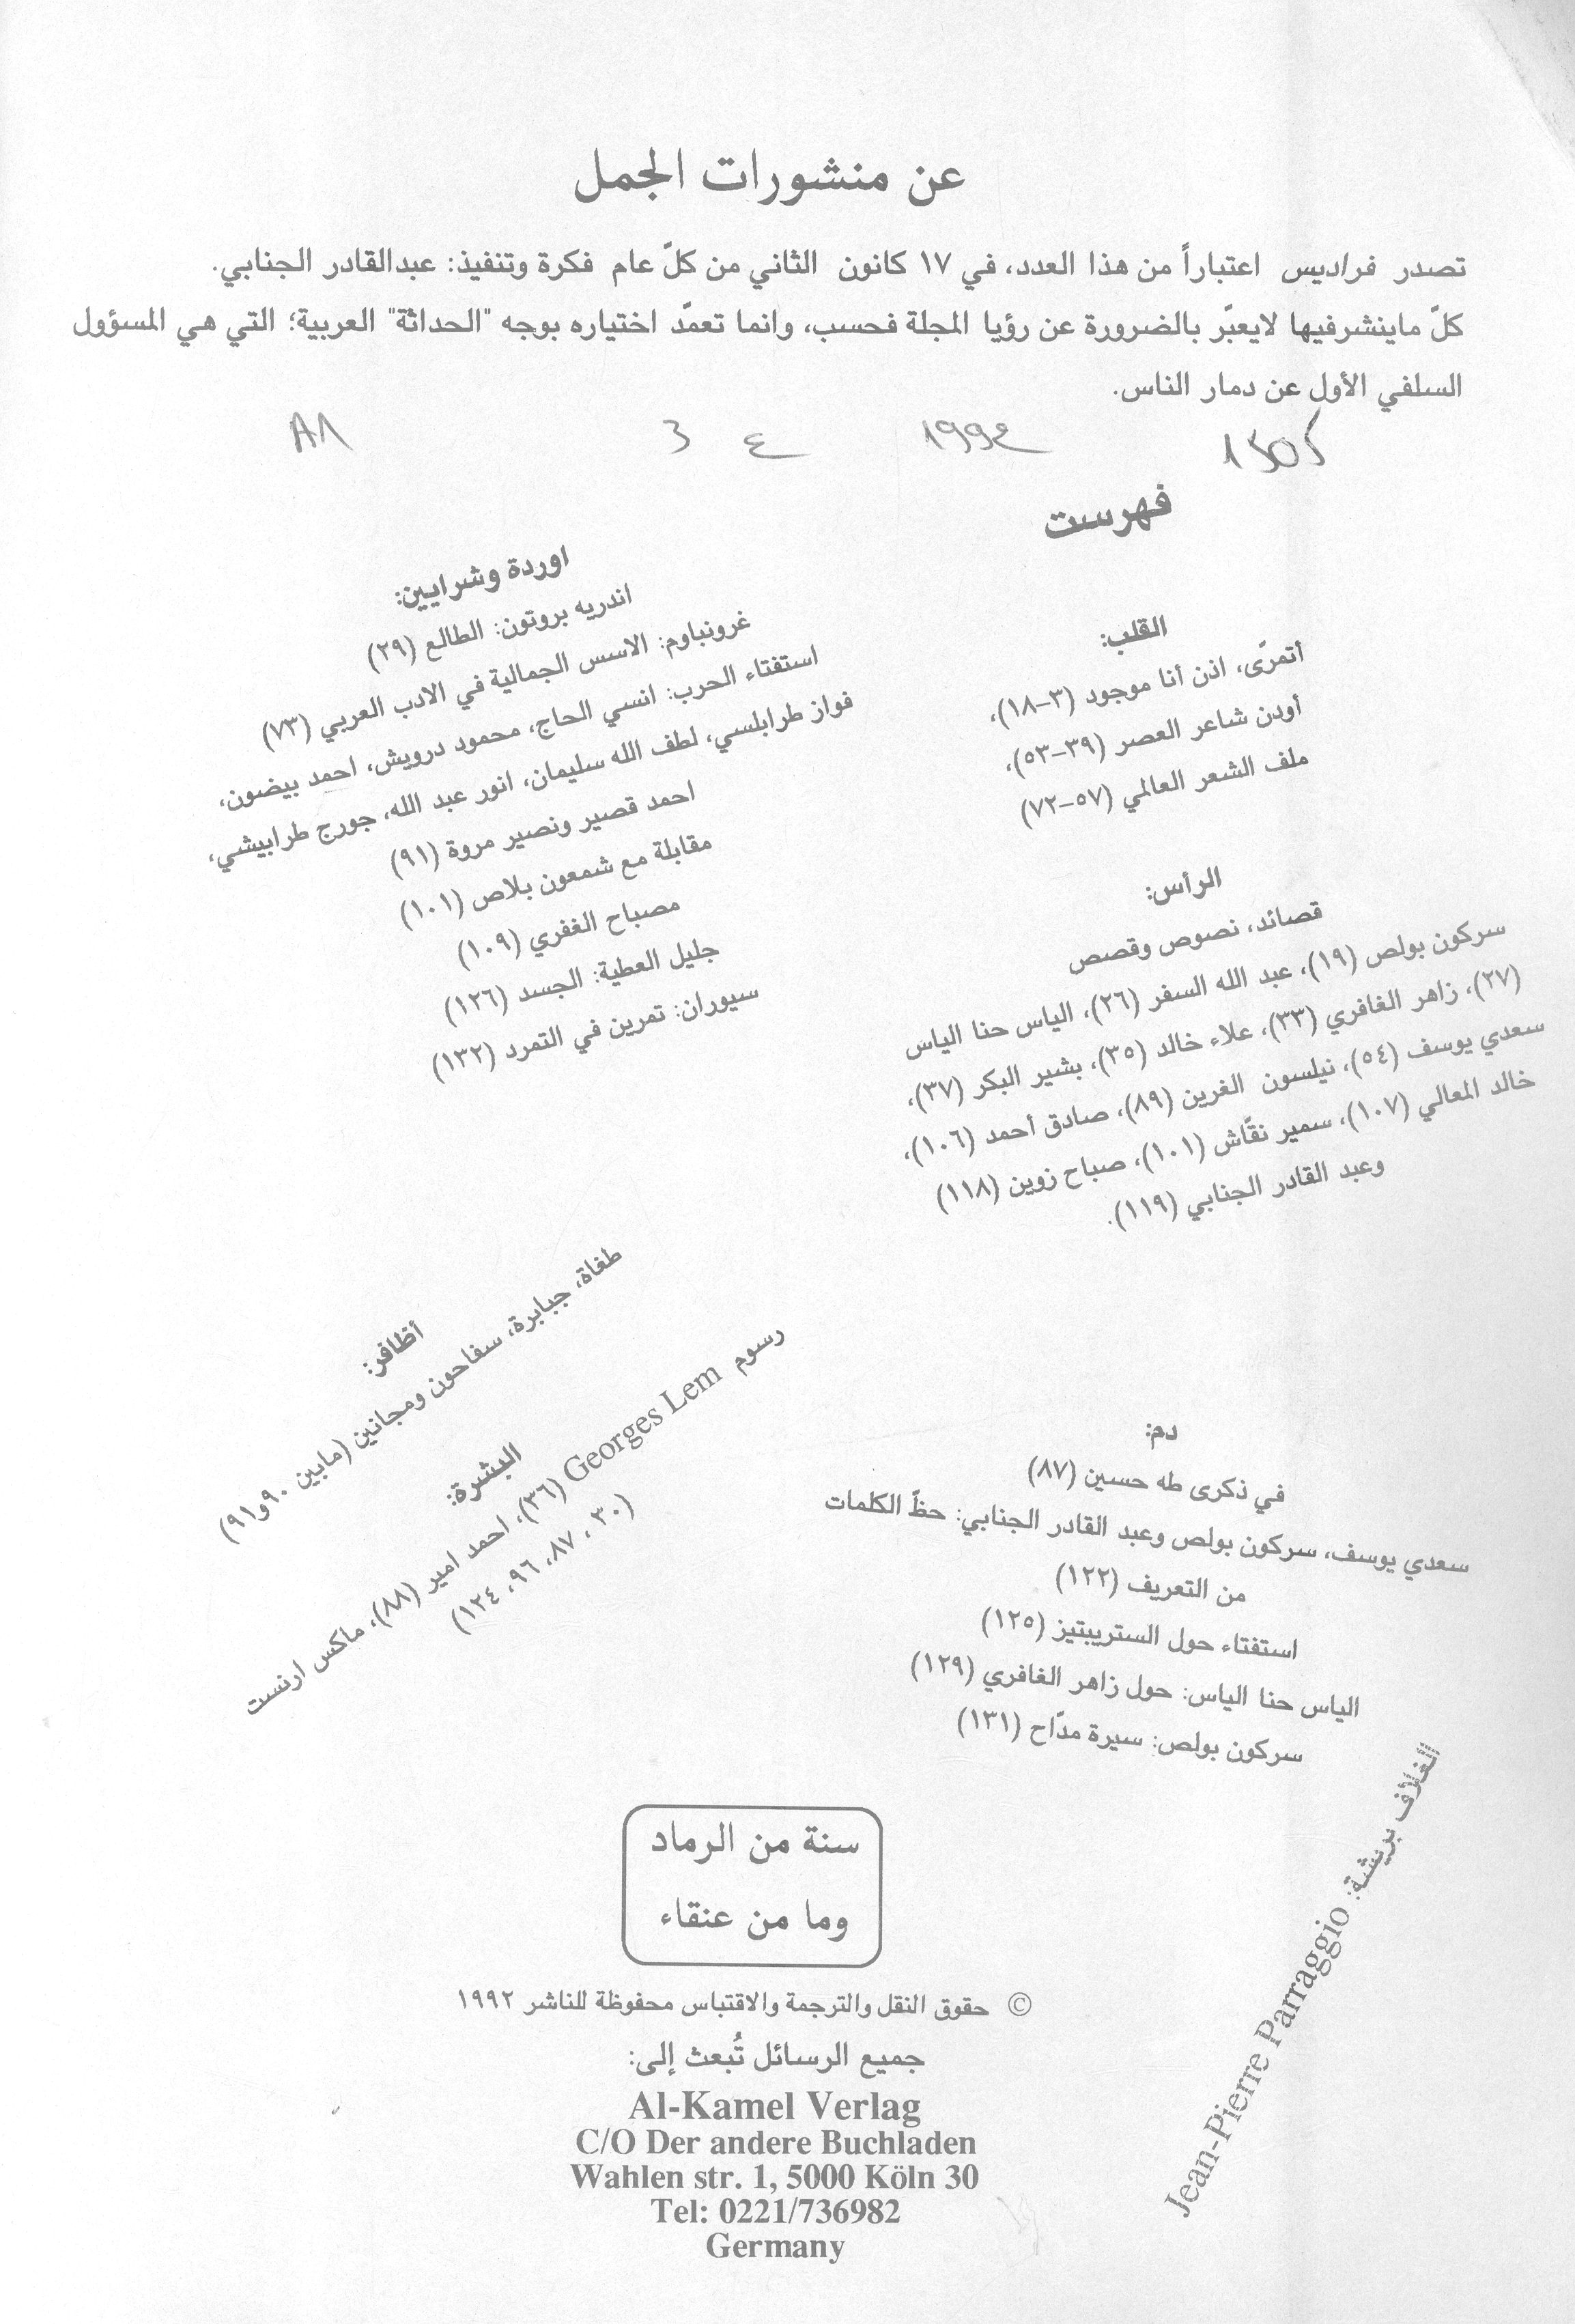 عن منشورات الجمل
تصدر فراديس اعتباراً من هذا العدد، في ١٧ كانون الثاني من كلّ عام فكرة وتنفيذ: عبدالقادر الجنابي.
كلّ ماينشرفيها لايعبّر بالضرورة عن رؤيا المجلة فحسب، وانما تعمّد اختياره بوجه "الحداثة" العربية؛ التي هي المسؤول
السلفي الأول عن دمار الناس.
فهرست
القلب:
أتمرّى، اذن أنا موجود (٣-١٨)،
أودن شاعر العصر (٣٩-٥٣)،
ملف الشعر العالمي (٥٧-٧٢)
الرأس:
قصائد، نصوص وقصص
سركون بولص (١٩)، عبد الله السفر (٢٦)، الياس حنا الياس
(٢٧)، زاهر الغافري (٣٣)، علاء خالد (٣٥)، بشير البكر (٣٧)،
سعدي يوسف (٥٤)، نيلسون الغرين (٨٩)، صادق أحمد (١٠٦)،
خالد المعالي (١٠٧)، سمير نقّاش (١٠١)، صباح زوين (١١٨)
وعبد القادر الجنابي (١١٩).
اوردة وشرايين:
اندريه بروتون: الطالع (٢٩)
غرونباوم: الاسس الجمالية في الادب العربي (٧٣)
استفتاء الحرب: انسي الحاج، محمود درويش، احمد بيضون،
فواز طرابلسي، لطف الله سليمان، انور عبد الله، جورج طرابيشي،
احمد قصير ونصير مروة (٩١)
مقابلة مع شمعون بلاص (١٠١)
مصباح الغفري (١٠٩)
جليل العطية: الجسد (١٢٦)
سيوران: تمرين في التمرد (١٣٢)
أظافر:
طغاة، جبابرة، سفاحون ومجانين (مابين ٩٠و٩١)
البشرة:
رسوم Georges Lem (٣٦)، احمد امير (٨٨)، ماكس ارنست
(٣٠، ٨٧، ٩٦، ١٢٤)
دم:
في ذكرى طه حسين (٨٧)
سعدي يوسف، سركون بولص وعبد القادر الجنابي: حظّ الكلمات
من التعريف (١٢٢)
استفتاء حول الستريبتيز (١٢٥)
الياس حنا الياس: حول زاهر الغافري (١٢٩)
سركون بولص: سيرة مدّاح (١٣١)
الغلاف بريشة: Jean-Pierre Parraggio
سنة من الرماد
وما من عنقاء
© حقوق النقل والترجمة والاقتباس محفوظة للناشر ١٩٩٢
جميع الرسائل تُبعث إلى:
Al-Kamel Verlag
C/O Der andere Buchladen
Wahlen str. 1, 5000 Köln 30
Tel: 0221/736982
Germany